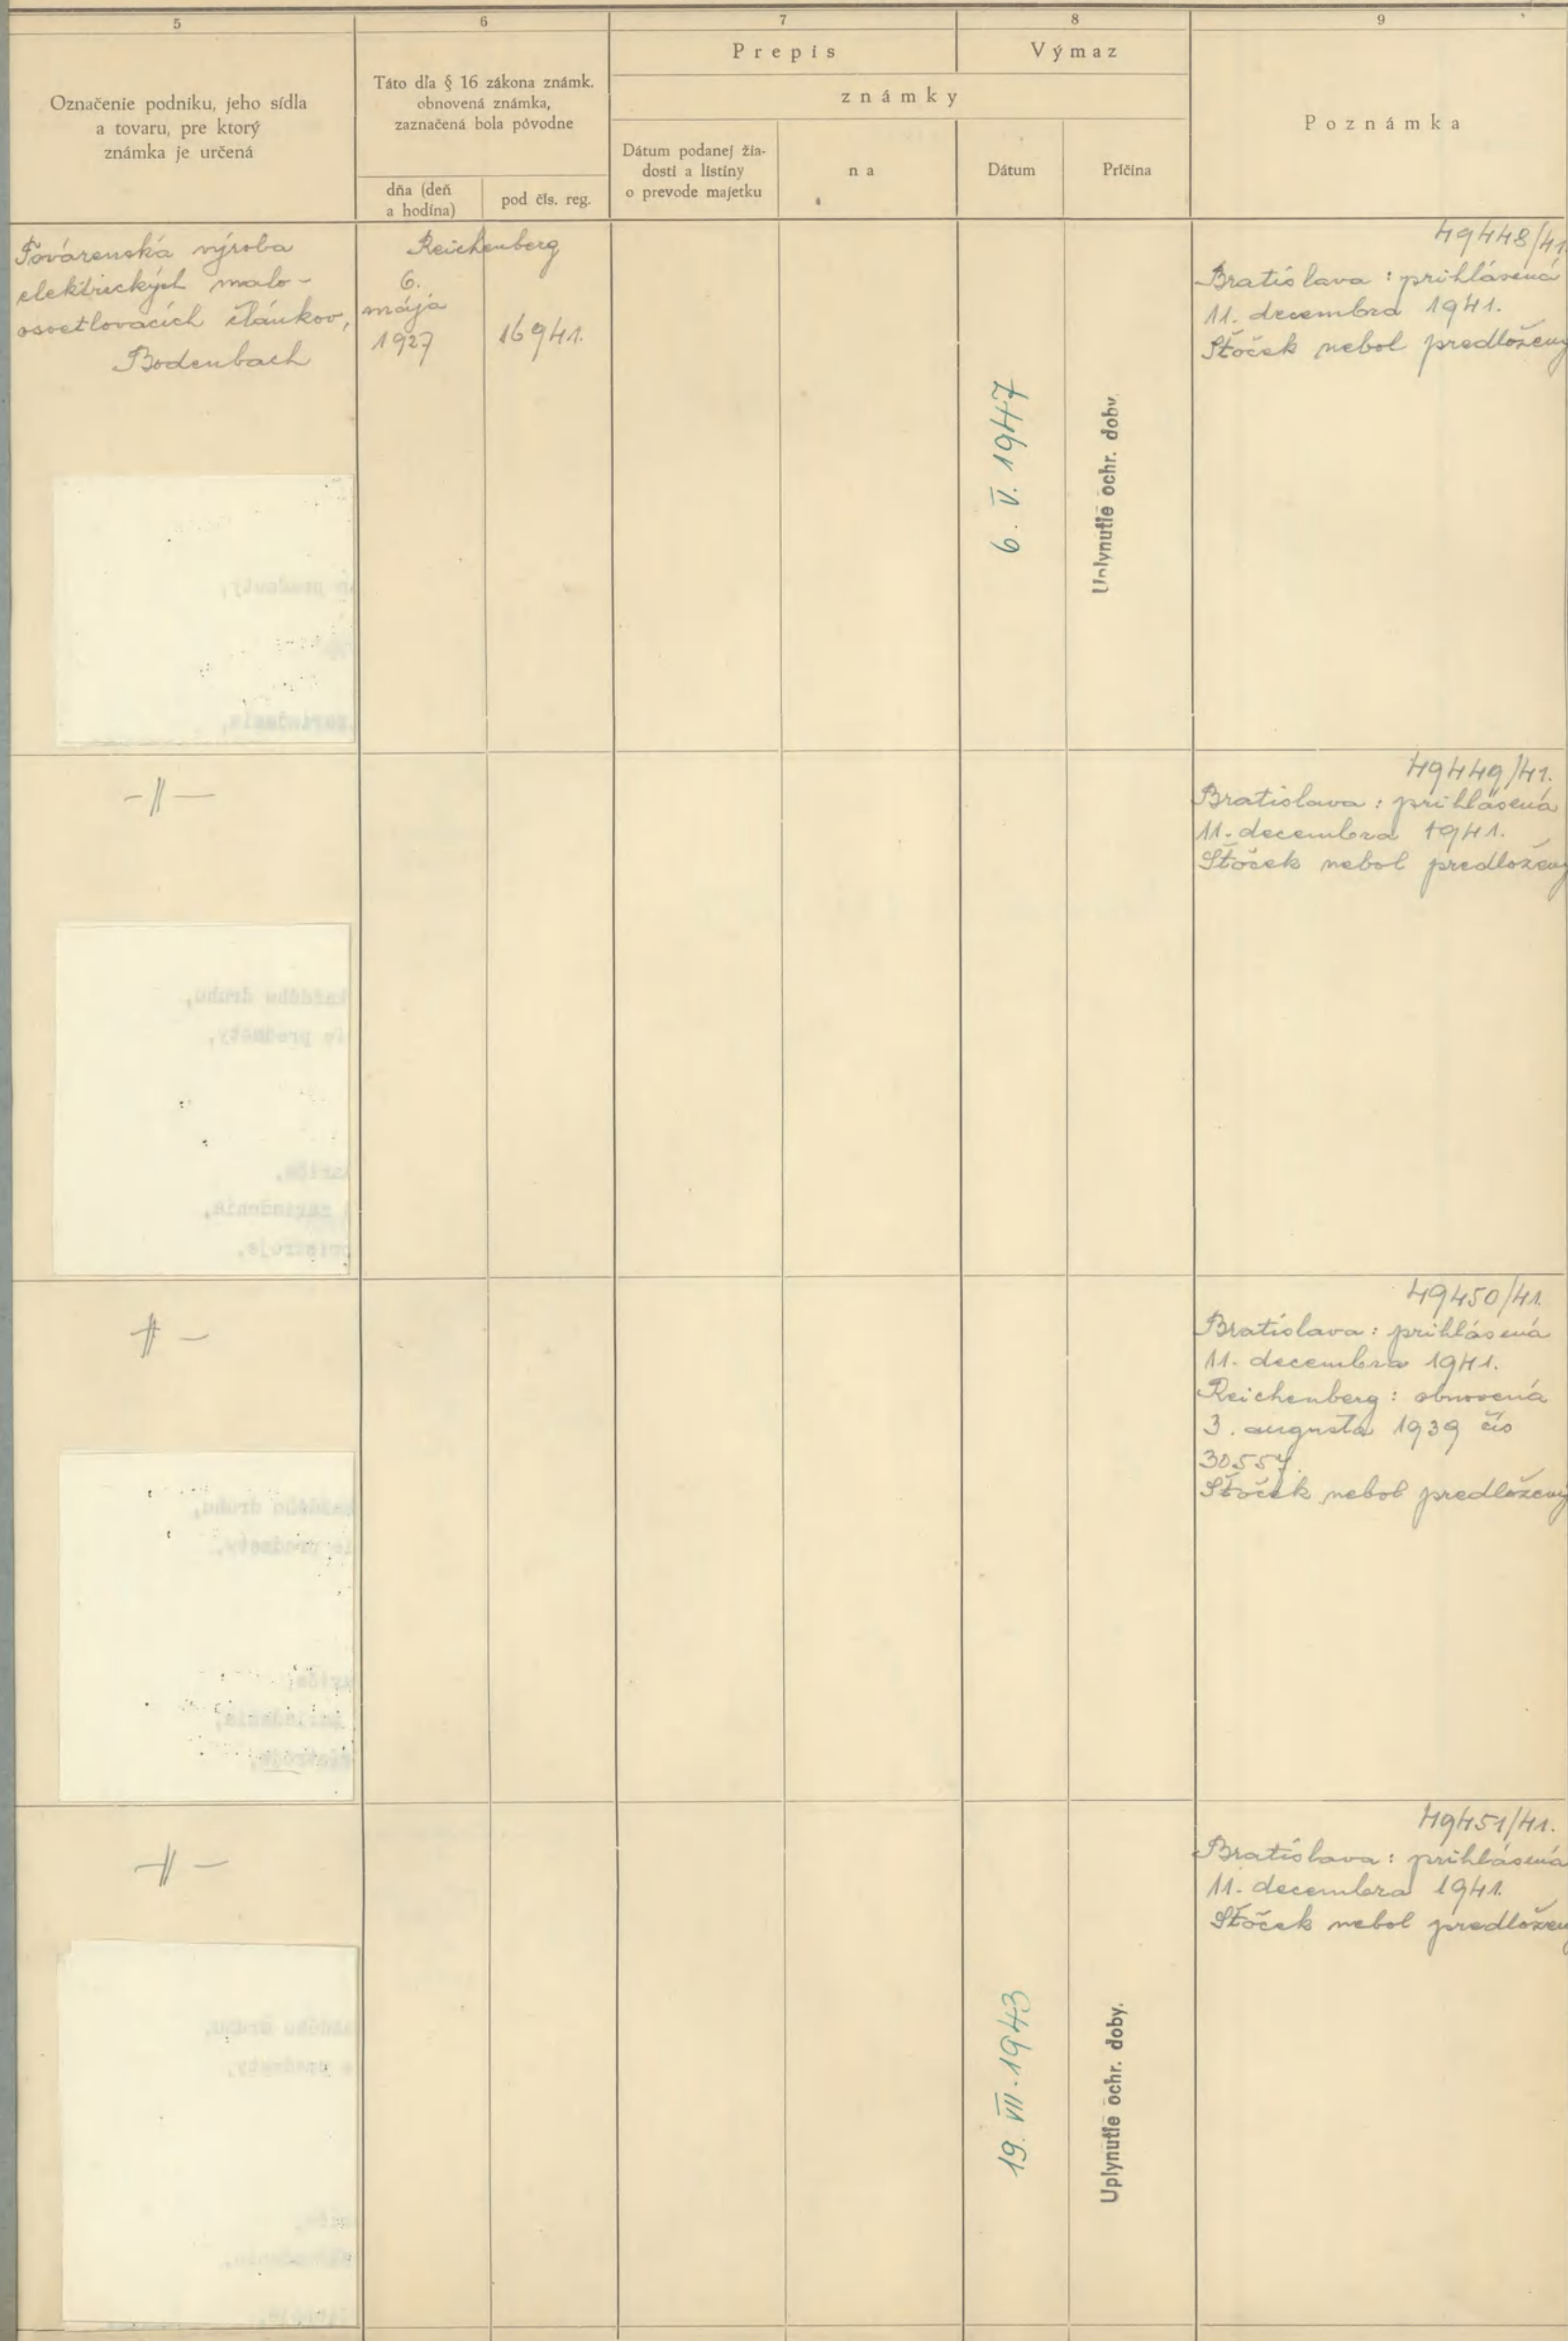 5
6
7
8
9
Označenie podniku, jeho sídla
a tovaru, pre ktorý
známka je určená
Táto dľa § 16 zákona známk.
obnovená známka,
zaznačená bola pôvodne
dňa (deň
a hodina)
pod čís. reg.
Prepis
Výmaz
známky
Dátum podanej žia-
dosti a listiny
o prevode majetku
na
Dátum
Príčina
Poznámka
Továrenská výroba
elektrických malo-
osvetlovacích článkov,
Bodenbach
Reichenberg
6.
mája
1927
16941.
6. V. 1947
Uplynutie ochr. doby.
49448/41.
Bratislava : prihlásená
11. decembra 1941.
Štoček nebol predložený
-//-
49449/41.
Bratislava : prihlásená
11. decembra 1941.
Štoček nebol predložený
každého druhu,
predmety,
zariadenia,
-//-
49450/41.
Bratislava : prihlásená
11. decembra 1941.
Reichenberg : obnovená
3. augusta 1939 čís
30557.
Štoček nebol predložený
každého druhu,
predmety,
-//-
19. VII. 1943
Uplynutie ochr. doby.
49451/41.
Bratislava : prihlásená
11. decembra 1941.
Štoček nebol predložený